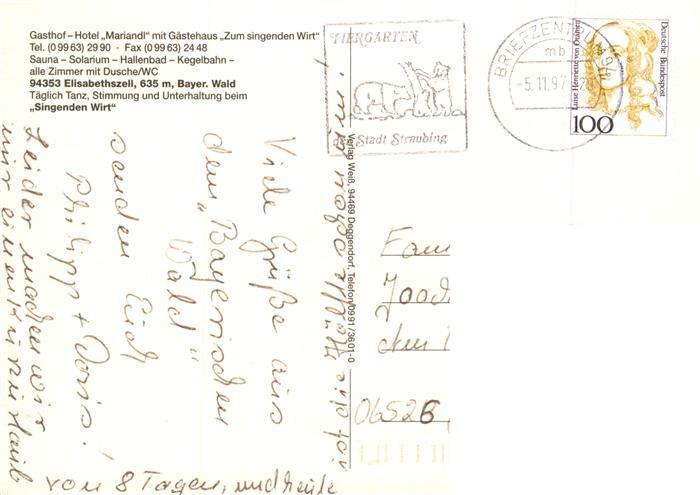 Gasthof – Hotel „Mariandl“ mit Gästehaus „Zum singenden Wirt“
Tel. (0 99 63) 29 90 · Fax (0 99 63) 24 48
Sauna – Solarium – Hallenbad – Kegelbahn –
alle Zimmer mit Dusche/WC
94353 Elisabethszell, 635 m, Bayer. Wald
Täglich Tanz, Stimmung und Unterhaltung beim
„Singenden Wirt“
TIERGARTEN
der Stadt Straubing
BRIEFZENTRUM
mb
-5.11.97
Deutsche Bundespost
Luise Henriette von Oranien
100
Verlag Weiß, 94469 Deggendorf, Telefon 09 91/36 01-0
Viele Grüße aus
dem „Bayerischen
Wald“
senden Euch
Philipp + Doris!
Leider machen wir
nur einen Kurzurlaub
von 8 Tagen, und heute
Fam
06526